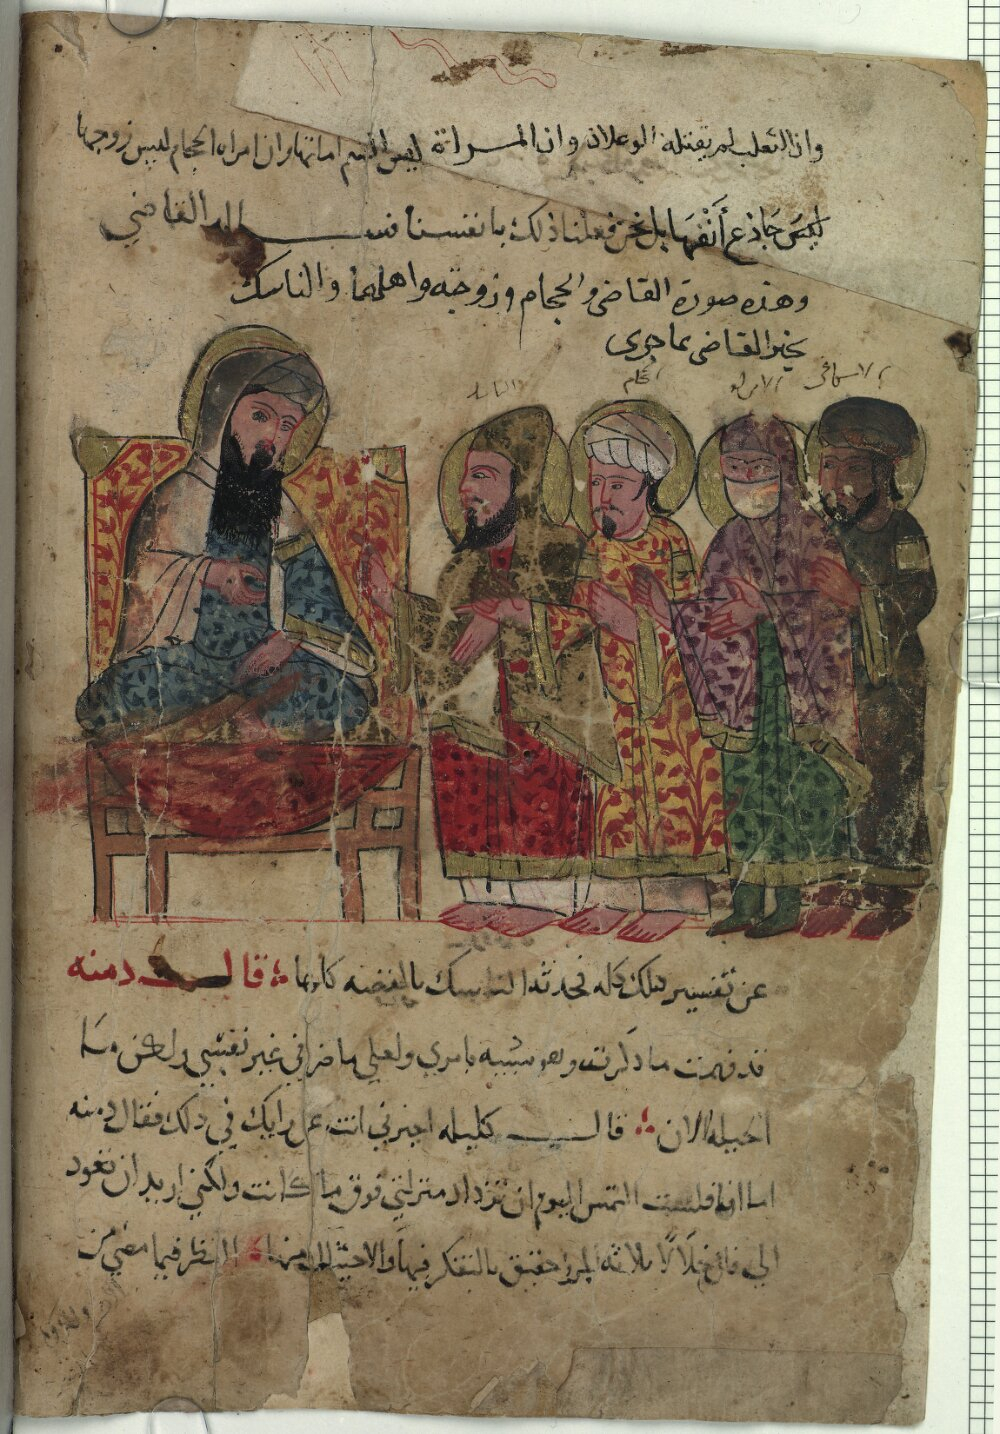 وان الثعلب لم يقتله الوعلان وان المراة ليس السم اماتها وان امراه الحجام ليس زوجها
ليس جاذع أنفها بل نحن فعلنا ذلك بانفسنا فسـاله القاضي
وهذه صورة القاضي والحجام وزوجته واهلهما والناسك
يخبر القاضي بما جرى
الناسك
الحجام
عن تفسير ذلك كله فحدثه الناسك بالقضه كلها قال دمنه
قد فهمت ما ذكرت وهو شبيه بامري ولعلي ما ضرني غير نفسي ولكن ما
الحيله الان قال كليله اخبرني انت عن رايك في ذلك فقال دمنه
اما انا فلست التمس اليوم ان تزداد منزلتي فوق ما كانت ولكني اريد ان تعود
الي فان خلالا ثلاثه المرؤ حقيق بالتفكر فيها والاحتيال لها منها النظر فيما مضي من